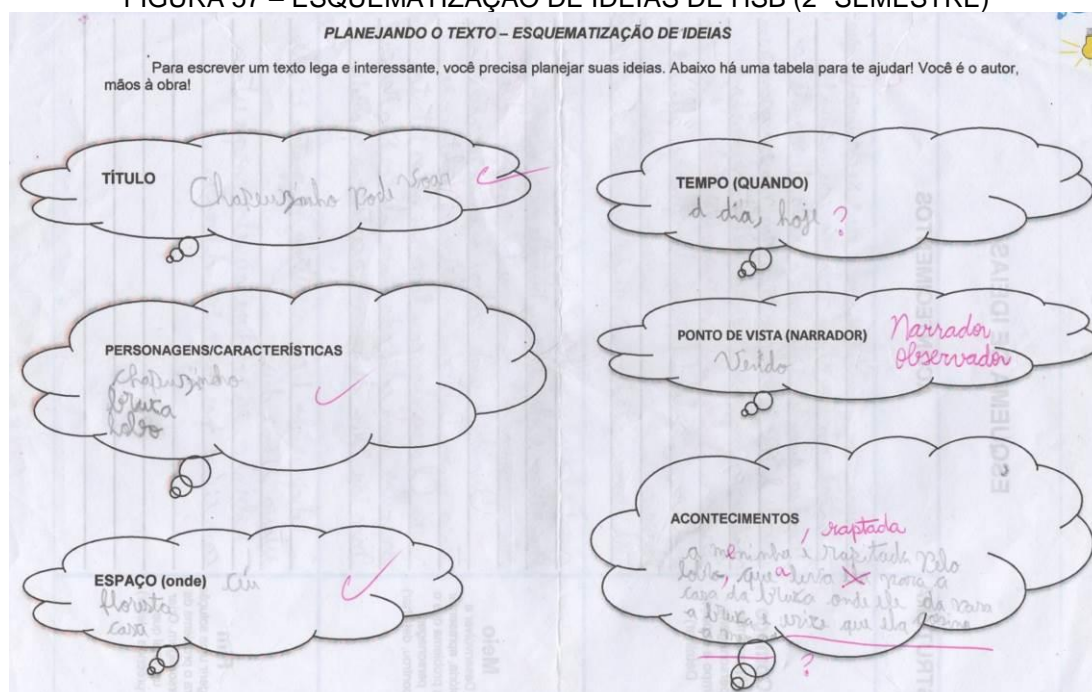 FIGURA 57 – ESQUEMATIZAÇÃO DE IDEIAS DE HSB (2º SEMESTRE)
PLANEJANDO O TEXTO – ESQUEMATIZAÇÃO DE IDEIAS
Para escrever um texto lega e interessante, você precisa planejar suas ideias. Abaixo há uma tabela para te ajudar! Você é o autor,
mãos à obra!
TÍTULO
Chapeuzinho pode voar
PERSONAGENS/CARACTERÍSTICAS
Chapeuzinho
bruxa
lobo
ESPAÇO (onde) céu
floresta
casa
TEMPO (QUANDO)
d dia, hoje ?
PONTO DE VISTA (NARRADOR)
Vendo
Narrador
observador
ACONTECIMENTOS
, raptada
a meninha é rapitada pelo
lobo, que a leva para a
casa da bruxa onde ele da para
a bruxa e que ela
?